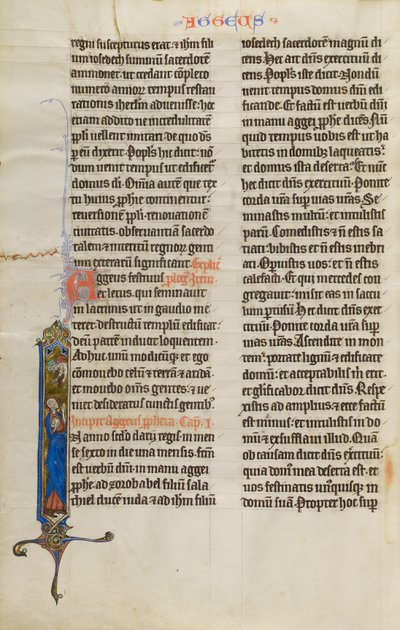 AGGEUS
regni suscepturus erat. et ihm fili
um iosedech summum sacerdotē
ammonet. ut credant cōpleto
numero annoꝝ tempus restau
rationis iherl̄m aduenisse. hoc
etiam addito ne incredulitatē
ppl̄i uellent imitari. de quo dn̄s
per eū dixerat. Popl̄s hic dicit. nō
dum uenit tempus ut edificetᷣ
domus dī. Om̄ia autē que tex
tu huius ꝓph̄ie continentur.
reuersionem ppl̄i. renouationē
ciuitatis. obseruantiam sacerdo
talem. et interitū regnoꝝ genti
um exteraꝝ significant. Explic̄
Aggeus festiuus plog' Item
et letus. qui seminauit
in lacrimis ut in gaudio me
teret. destructū templū edificat.
deū patrē inducit loquentem.
Adhuc unū modicūque et ego
cōmouebo celū et terrā. et aridā
et mouebo om̄s gentes. et ue
niet desideratus cunctis gentibꝫ.
Incipit Aggeus ꝓpheta. Cap. I.
In anno scdo darij regis. in men
se sexto in die una mensis. fcm̄
est uerbū dnī. in manu aggei
ꝓphe. ad zorobabel filiū sala
thiel ducē iuda. et ad ihm filiū
iosedech sacerdotē magnū di
cens. Hec ait dn̄s exercituū di
cens. Popl̄s iste dicit. Nondū
uenit tempus domus dnī edi
ficande. Et factū est uerbū dnī
in manu aggei ꝓphe dicēs. Nū
quid tempus uobis est ut ha
bitetis in domibꝫ laqueatis.
et domus ista deserta. Et nunc
hec dicit dn̄s exercituū. Ponite
corda ur̄a suꝑ uias ur̄as. Se
minastis multū. et intulistis
parū. Comedistis et nō estis sa
tiati. bibistis et nō estis inebri
ati. Opuistis uos. et nō estis
calefacti. Et qui mercedes con
gregauit. misit eas in saccu
lum ꝑtusū. Hec dicit dn̄s exer
cituū. Ponite corda ur̄a suꝑ
uias ur̄as. Ascendite in mon
tem. portate lignū. et edificate
domū. et acceptabilis m̄ erit.
et glificabor dicit dn̄s. Respe
xistis ad amplius. et ecce factū
est minus. et intulistis in do
mū. et exsufflaui illud. Quā
ob causam dicit dn̄s exercituū.
quia domꝰ mea deserta est. et
uos festinatis unusquisque in
domū suā. Propter hoc suꝑ